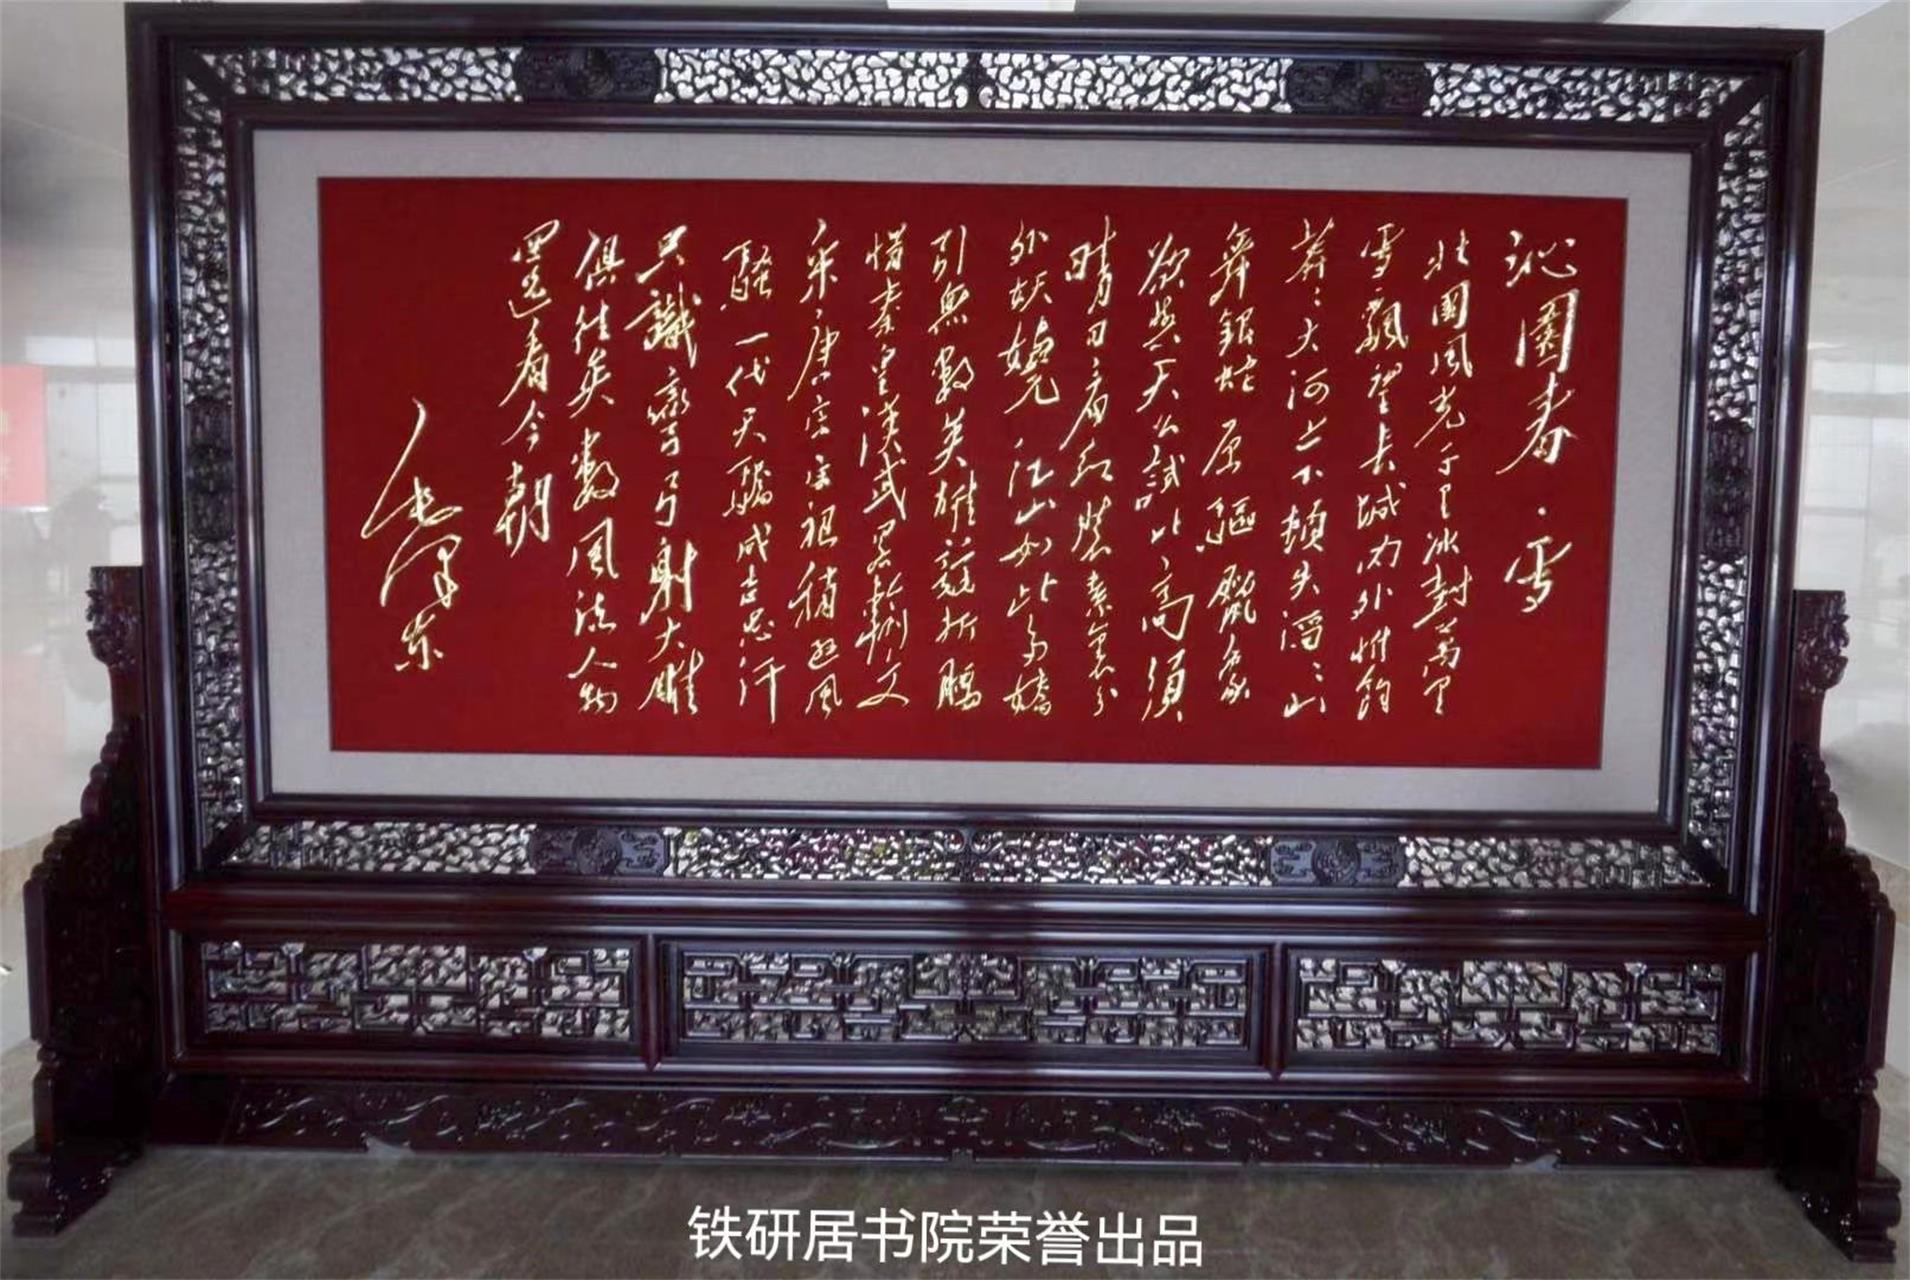 沁園春·雪
北國風光千里冰封萬里
雪飄望長城内外惟餘
莽莽大河上下頓失滔滔山
舞銀蛇原驅蠟象
欲與天公試比高須
晴日看紅裝素裹分
外妖嬈江山如此多嬌
引無數英雄競折腰
惜秦皇漢武畧輸文
采唐宗宋祖稍遜風
騷一代天驕成吉思汗
只識彎弓射大雕
俱往矣數風流人物
還看今朝
毛泽东
铁研居书院荣誉出品